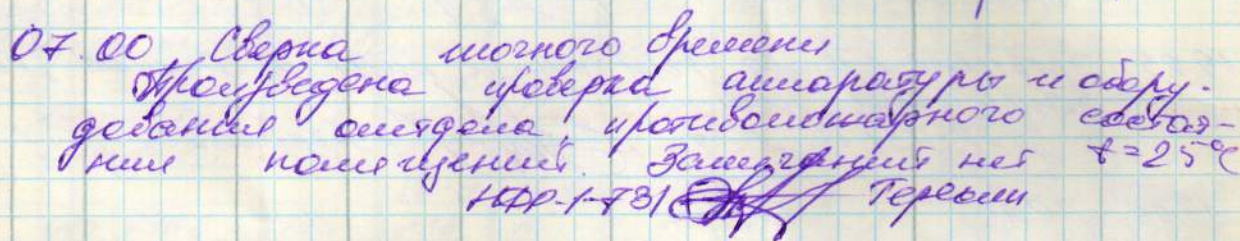 07.00 Сверка точного времени
Произведена проверка аппаратуры и обору-
дования отдела, противопожарного состоя-
ния помещений. Замечаний нет t=25°C